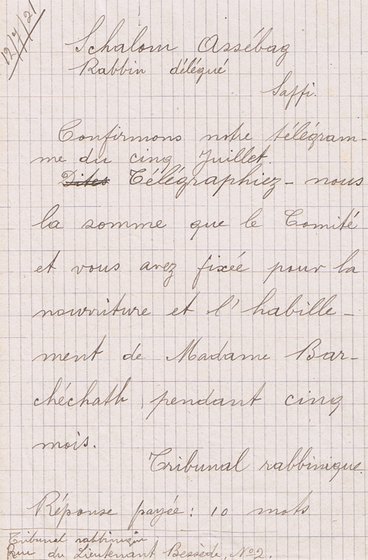 12/7/21
Schalom Assébag
Rabbin délégué
Saffi.
Confirmons notre télégram-
me du cinq Juillet.
Dites Télégraphiez-nous
la somme que le Comité
et vous avez fixée pour la
nourriture et l'habille-
ment de Madame Bar-
chéchath pendant cinq
mois.
Tribunal rabbinique.
Réponse payée: 10 mots
Tribunal rabbinique
Rue du Lieutenant Bessède, No 2.